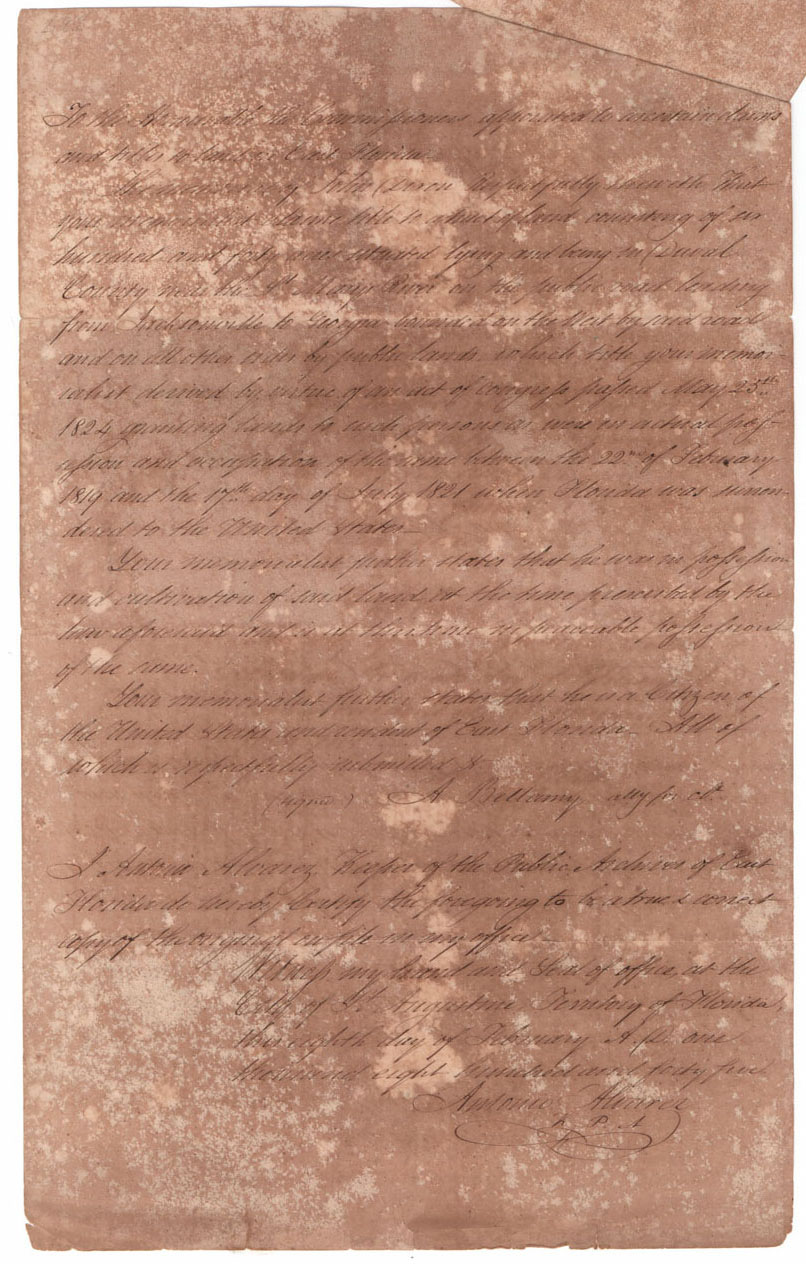 To the Honorable the Commissioners appointed to ascertain claims
and titles to land in East Florida
The memorial of John Respectfully sheweth That
your memorialist claims title to a tract of land consisting of six
hundred and forty acres situated lying and being in Duval
County near the St Marys River on the public road leading
from Jacksonville to Georgia bounded on the West by said road
and on all other sides by public lands, which title your memor-
ialist derived by virtue of an act of Congress passed May 23rd
1824 granting lands to such persons as were in actual poss-
ession and occupation of the same between the 22nd of February
1819 and the 17th day of July 1821 when Florida was surren-
dered to the United States—
Your memorialist further states that he was in possession
and cultivation of said land at the time prescribed by the
law aforesaid and is at this time in peaceable possession
of the same.
Your memorialist further states that he is a Citizen of
the United States and resident of East Florida— All of
which is respectfully submitted &
(signed) A Bellamy atty for clt.
I Antonio Alvarez Keeper of the Public Archives of East
Florida do hereby Certify the foregoing to be a true & correct
copy of the original on file in my office—
Witness my hand and Seal of office, at the
City of St Augustine Territory of Florida,
this eighth day of February A.D. one
thousand eight hundred and forty five
Antonio Alvarez
K P A